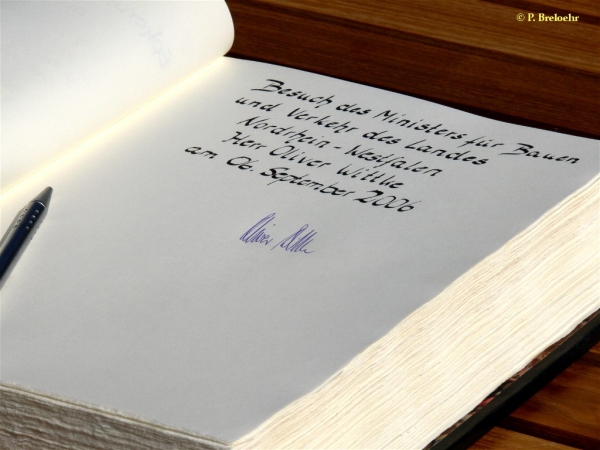 © P. Breloehr
Besuch des Ministers für Bauen
und Verkehr des Landes
Nordrhein-Westfalen
Herr Oliver Wittke
am 06. September 2006
Oliver